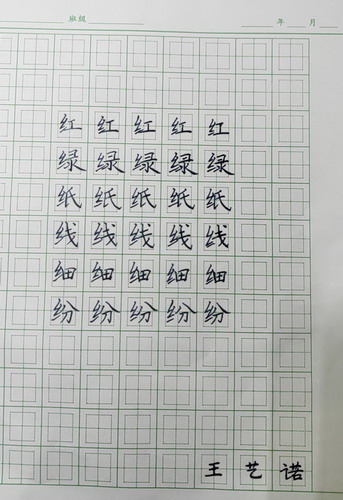 班级 年 月
红 红 红 红 红
绿 绿 绿 绿 绿
纸 纸 纸 纸 纸
线 线 线 线 线
细 细 细 细 细
纷 纷 纷 纷 纷
王 艺 诺